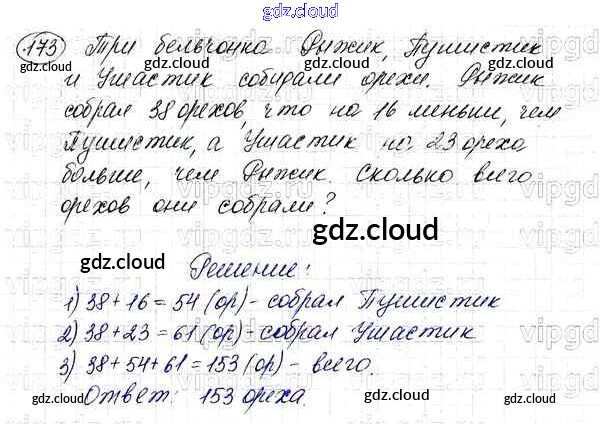 gdz.cloud
173 Три бельчонка Рыжик, Пушистик
и Ушастик собирали орехи. Рыжик
собрал 38 орехов, что на 16 меньше, чем
Пушистик, а Ушастик на 23 ореха
больше, чем Рыжик. Сколько всего
орехов они собрали?
gdz.cloud
gdz.cloud
gdz.cloud
Решение:
1) 38+16=54 (ор) - собрал Пушистик
2) 38+23=61 (ор) - собрал Ушастик
3) 38+54+61=153 (ор) - всего.
gdz.cloud gdz.cloud gdz.cloud
Ответ: 153 ореха.
gdz.cloud